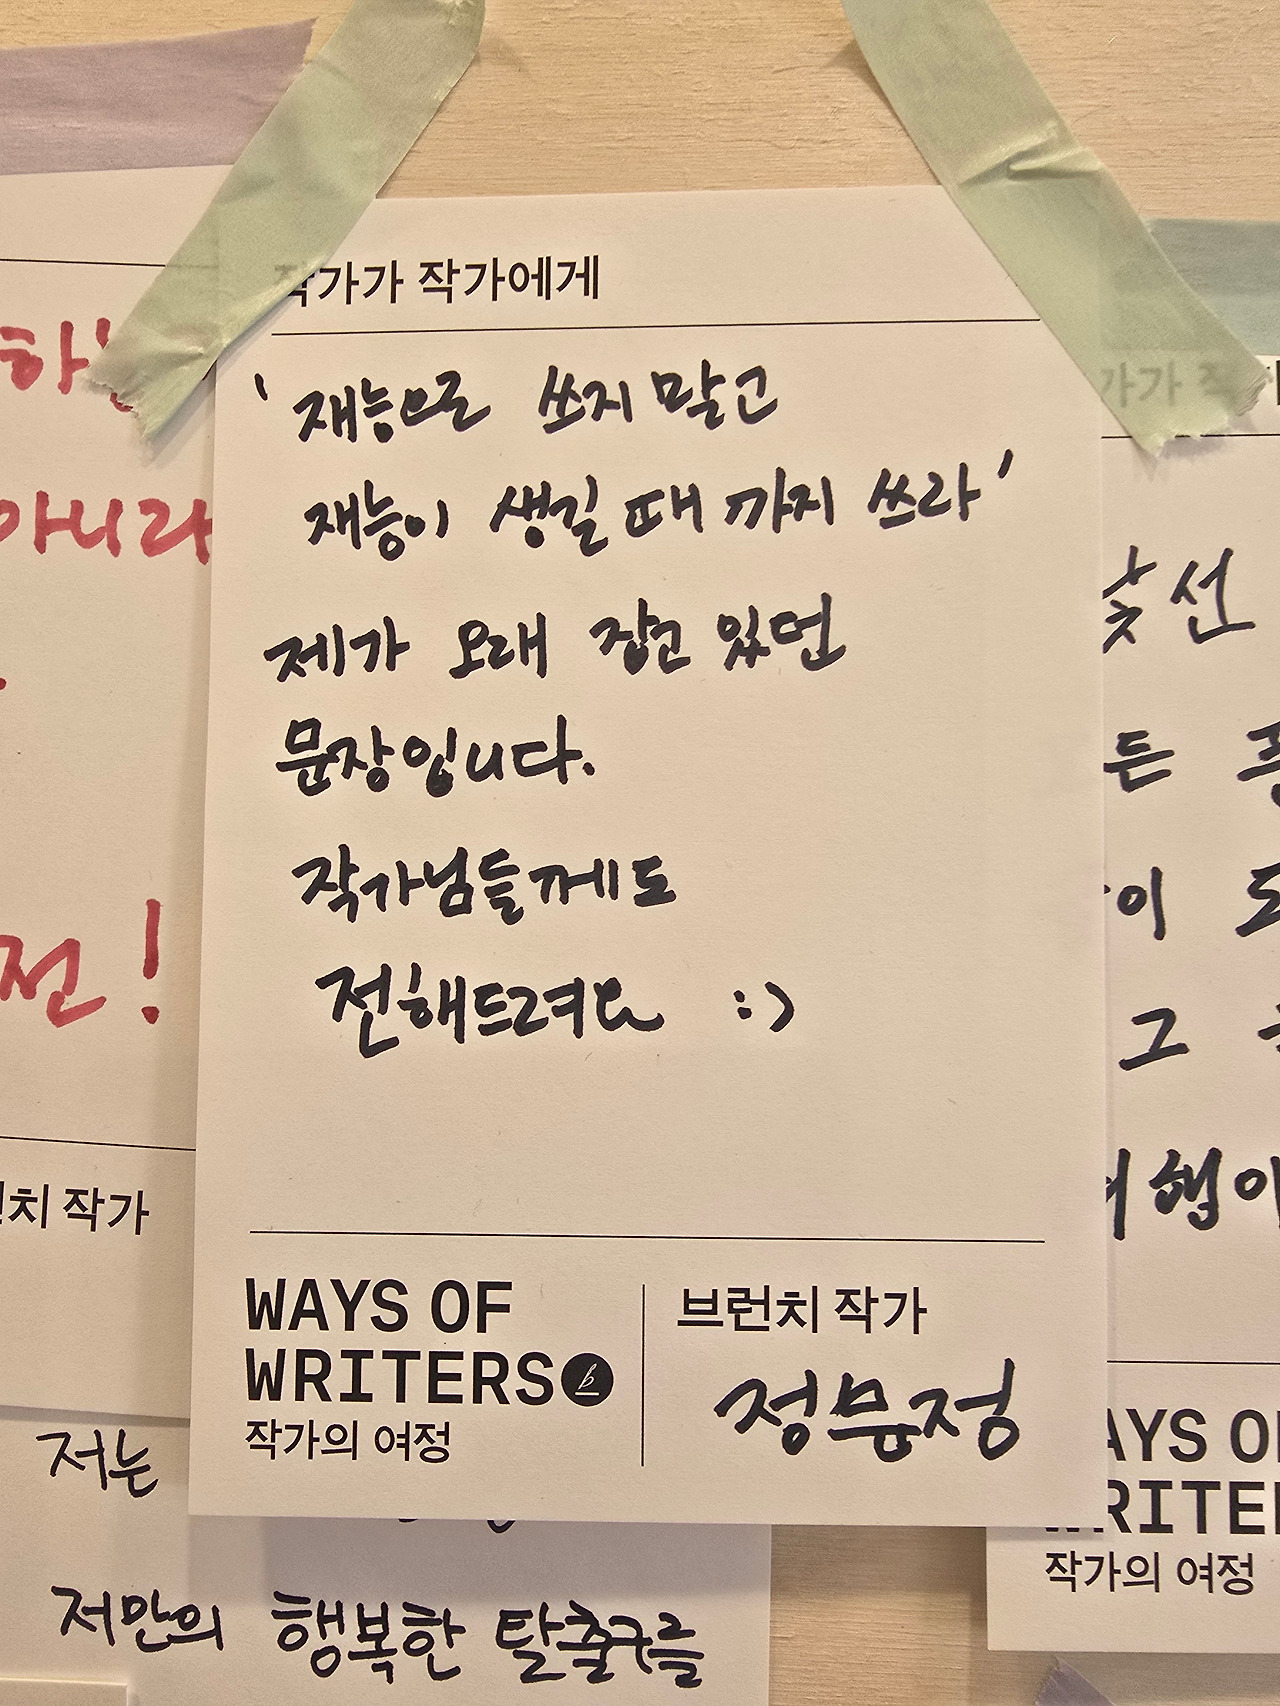 작가가 작가에게
'재능으로 쓰지 말고
재능이 생길 때 까지 쓰라'
제가 오래 잡고 있던
문장입니다.
작가님들께도
전해드려요 :)
WAYS OF
WRITERS
작가의 여정
브런치 작가
정문정
아니라
전!
치 작가
저는
저만의 행복한 탈출구를
선
든
이
그
AYS O
RITE
작가의 여정